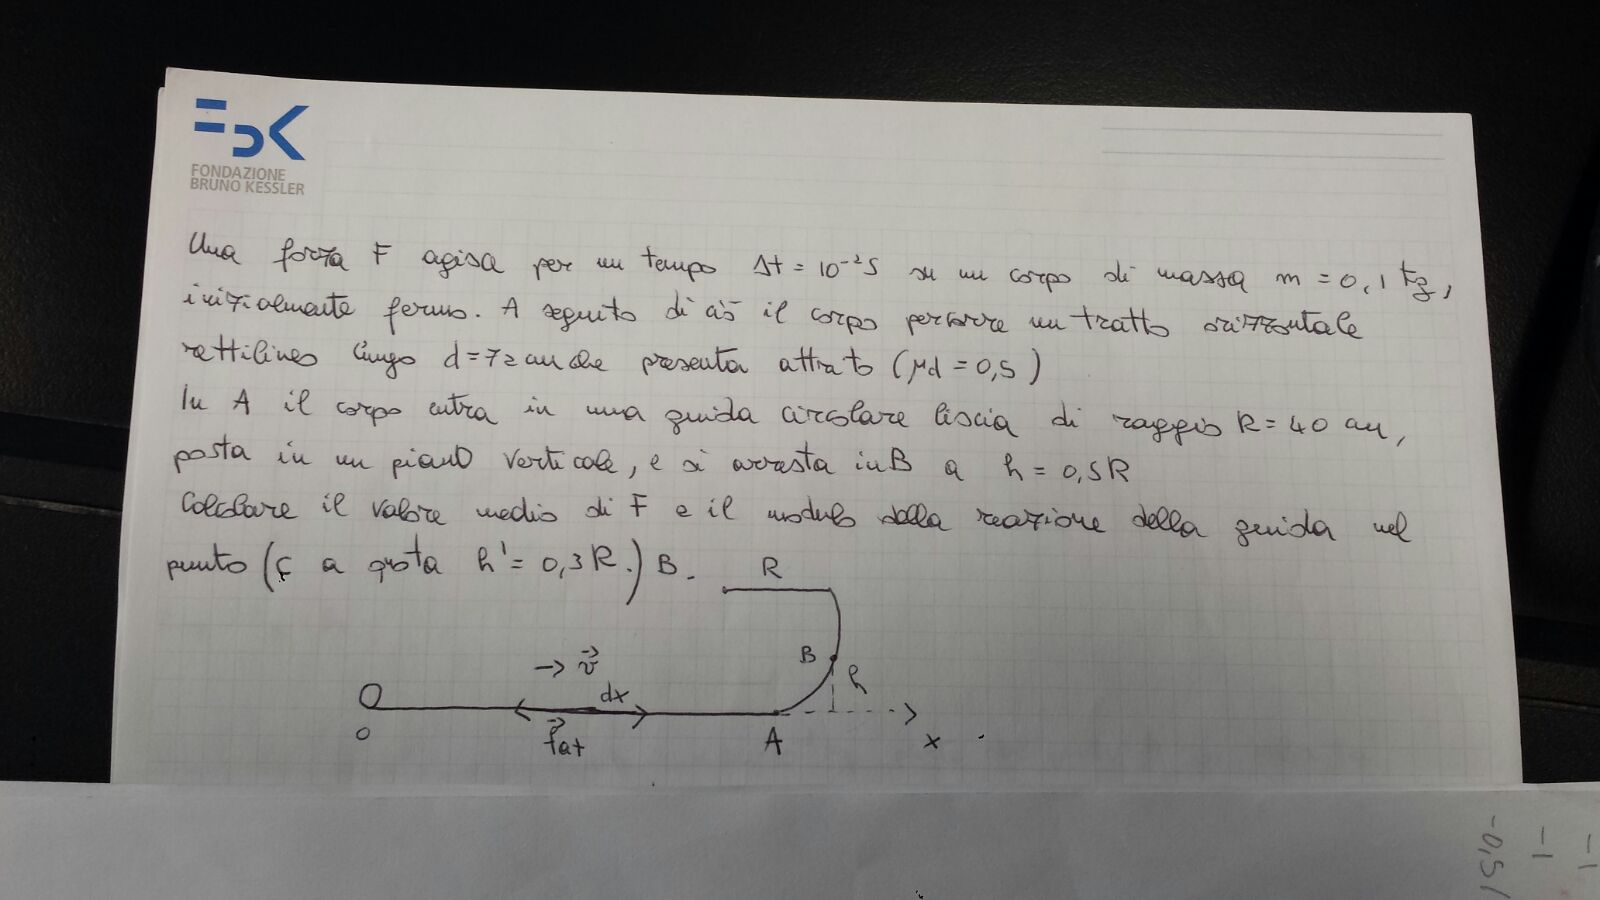 FBK
FONDAZIONE
BRUNO KESSLER
Una forza F agisce per un tempo Δt = 10⁻²s su un corpo di massa m = 0,1 kg,
inizialmente fermo. A seguito di ciò il corpo percorre un tratto orizzontale
rettilineo lungo d = 72 cm che presenta attrito (μd = 0,5)
In A il corpo entra in una guida circolare liscia di raggio R = 40 cm,
posta in un piano verticale, e si arresta in B a h = 0,5R
Calcolare il valore medio di F e il modulo della reazione della guida nel
punto (C a quota h' = 0,3 R.) B.
R
B
h
→ v⃗
dx
O
f⃗at
A
x
-1
-1
-0,5/